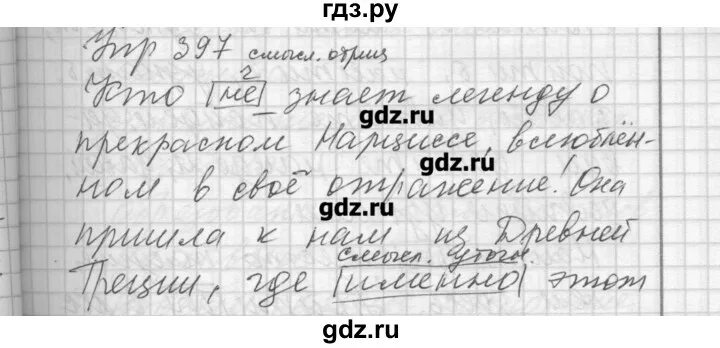 гдз.ру
Упр 397 смысл. отриц
ч
Кто не знает легенду о
gdz.ru
прекрасном Нарциссе, влюблён-
gdz.ru
ном в своё отражение! Она
gdz.ru
пришла к нам из Древней
смысл. уточн.
Греции, где именно этот
gdz.ru